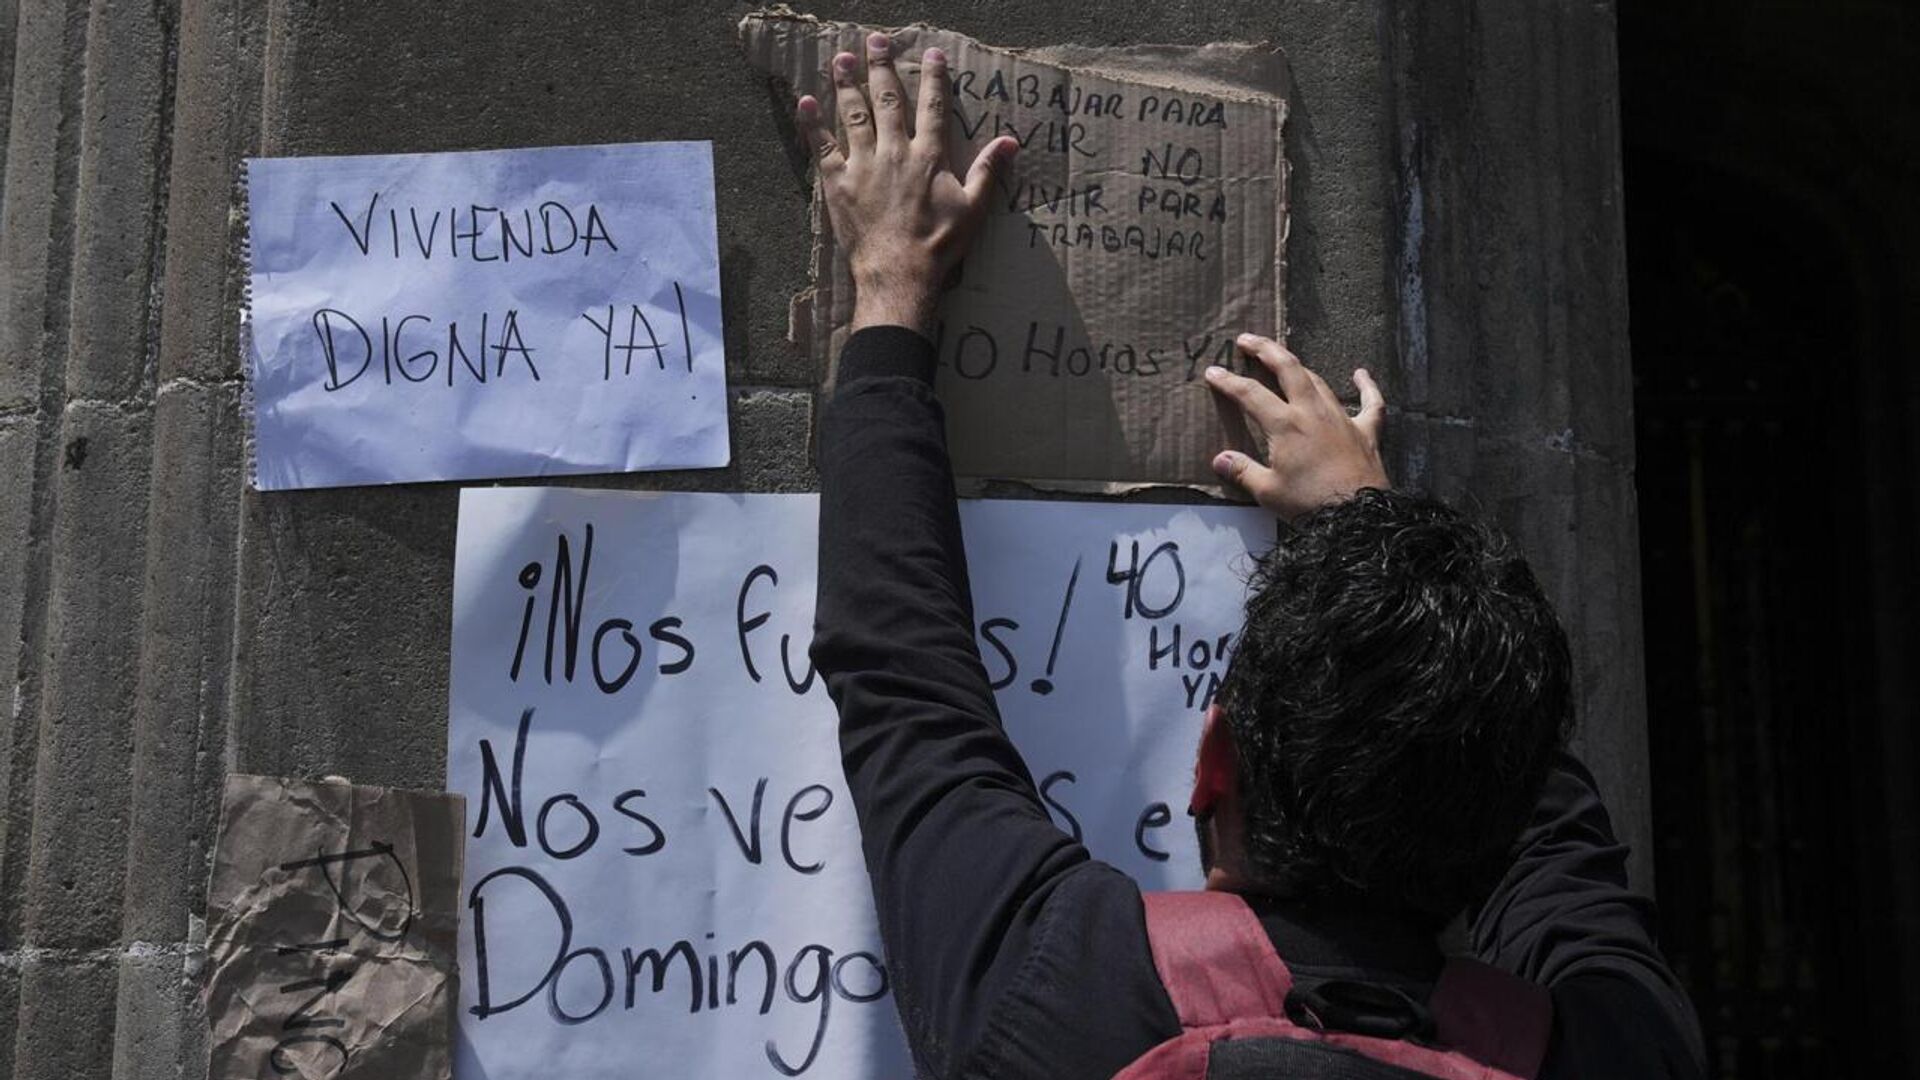 VIVIENDA
DIGNA YA!
TRABAJAR PARA
VIVIR NO
VIVIR PARA
TRABAJAR
40 Horas YA
¡Nos fu s!
40
Hor
YA
Nos ve s e
Domingo
PINO